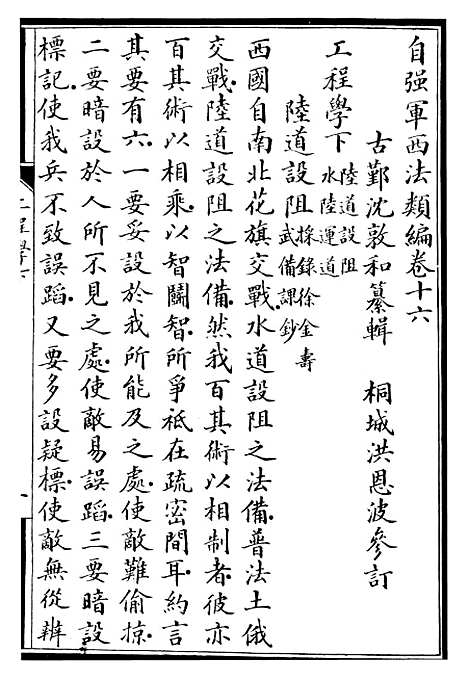 自强軍西法類編卷十六
古鄞沈敦和纂輯　桐城洪恩波參訂
工程學下
陸道設阻
水陸運道
陸道設阻
採錄徐金壽
武備課鈔
西國自南北花旗交戰水道設阻之法備普法土俄
交戰陸道設阻之法備然我百其術以相制者彼亦
百其術以相乘以智鬭智所爭祗在疏密間耳約言
其要有六一要妥設於我所能及之處使敵難偷掠
二要暗設於人所不見之處使敵易誤蹈三要暗設
標記使我兵不致誤蹈又要多設疑標使敵無從辨